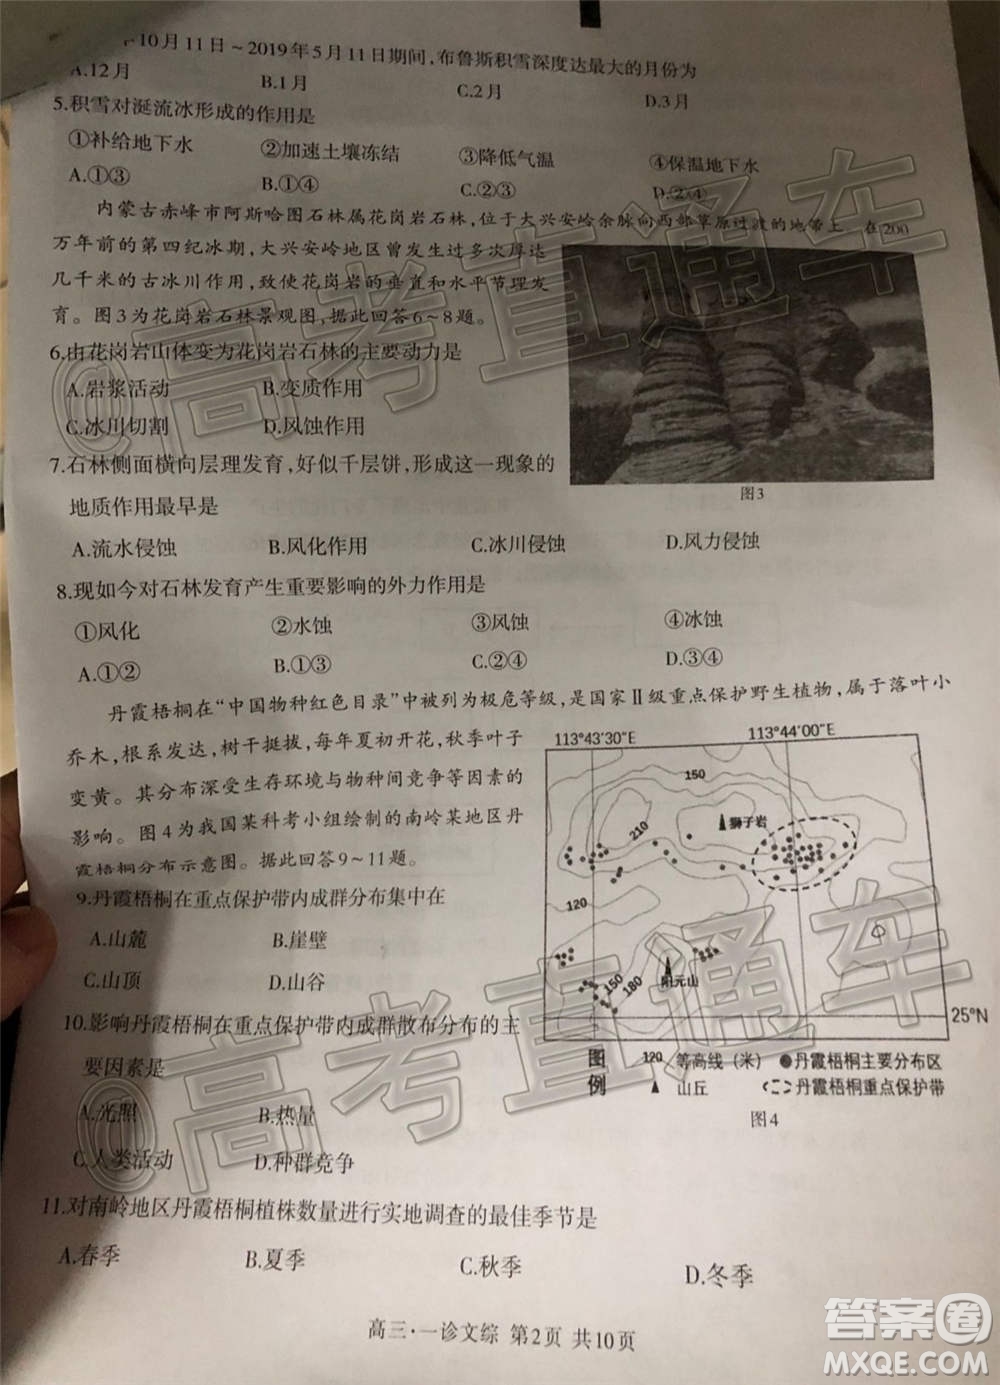 年10月11日～2019年5月11日期间,布鲁斯积雪深度达最大的月份为
A.12月 B.1月 C.2月 D.3月
5.积雪对涎流冰形成的作用是
①补给地下水 ②加速土壤冻结 ③降低气温 ④保温地下水
A.①③ B.①④ C.②③ D.②④
内蒙古赤峰市阿斯哈图石林属花岗岩石林,位于大兴安岭余脉向西部草原过渡的地带上。在200
万年前的第四纪冰期,大兴安岭地区曾发生过多次厚达
几千米的古冰川作用,致使花岗岩的垂直和水平节理发
育。图3为花岗岩石林景观图,据此回答6~8题。
6.由花岗岩山体变为花岗岩石林的主要动力是
A.岩浆活动 B.变质作用
C.冰川切割 D.风蚀作用
图3
7.石林侧面横向层理发育,好似千层饼,形成这一现象的
地质作用最早是
A.流水侵蚀 B.风化作用 C.冰川侵蚀 D.风力侵蚀
8.现如今对石林发育产生重要影响的外力作用是
①风化 ②水蚀 ③风蚀 ④冰蚀
A.①② B.①③ C.②④ D.③④
丹霞梧桐在“中国物种红色目录”中被列为极危等级,是国家Ⅱ级重点保护野生植物,属于落叶小
乔木,根系发达,树干挺拔,每年夏初开花,秋季叶子
变黄。其分布深受生存环境与物种间竞争等因素的
影响。图4为我国某科考小组绘制的南岭某地区丹
霞梧桐分布示意图。据此回答9~11题。
113°43′30″E 113°44′00″E
150
狮子岩
210
120
150
180
阳元山
25°N
图例
120 等高线（米） ●丹霞梧桐主要分布区
▲ 山丘 丹霞梧桐重点保护带
图4
9.丹霞梧桐在重点保护带内成群分布集中在
A.山麓 B.崖壁
C.山顶 D.山谷
10.影响丹霞梧桐在重点保护带内成群散布分布的主
要因素是
A.光照 B.热量
C.人类活动 D.种群竞争
11.对南岭地区丹霞梧桐植株数量进行实地调查的最佳季节是
A.春季 B.夏季 C.秋季 D.冬季
高三·一诊文综 第2页 共10页
@高考直通车
@高考直通车
答案圈
MXQE.COM